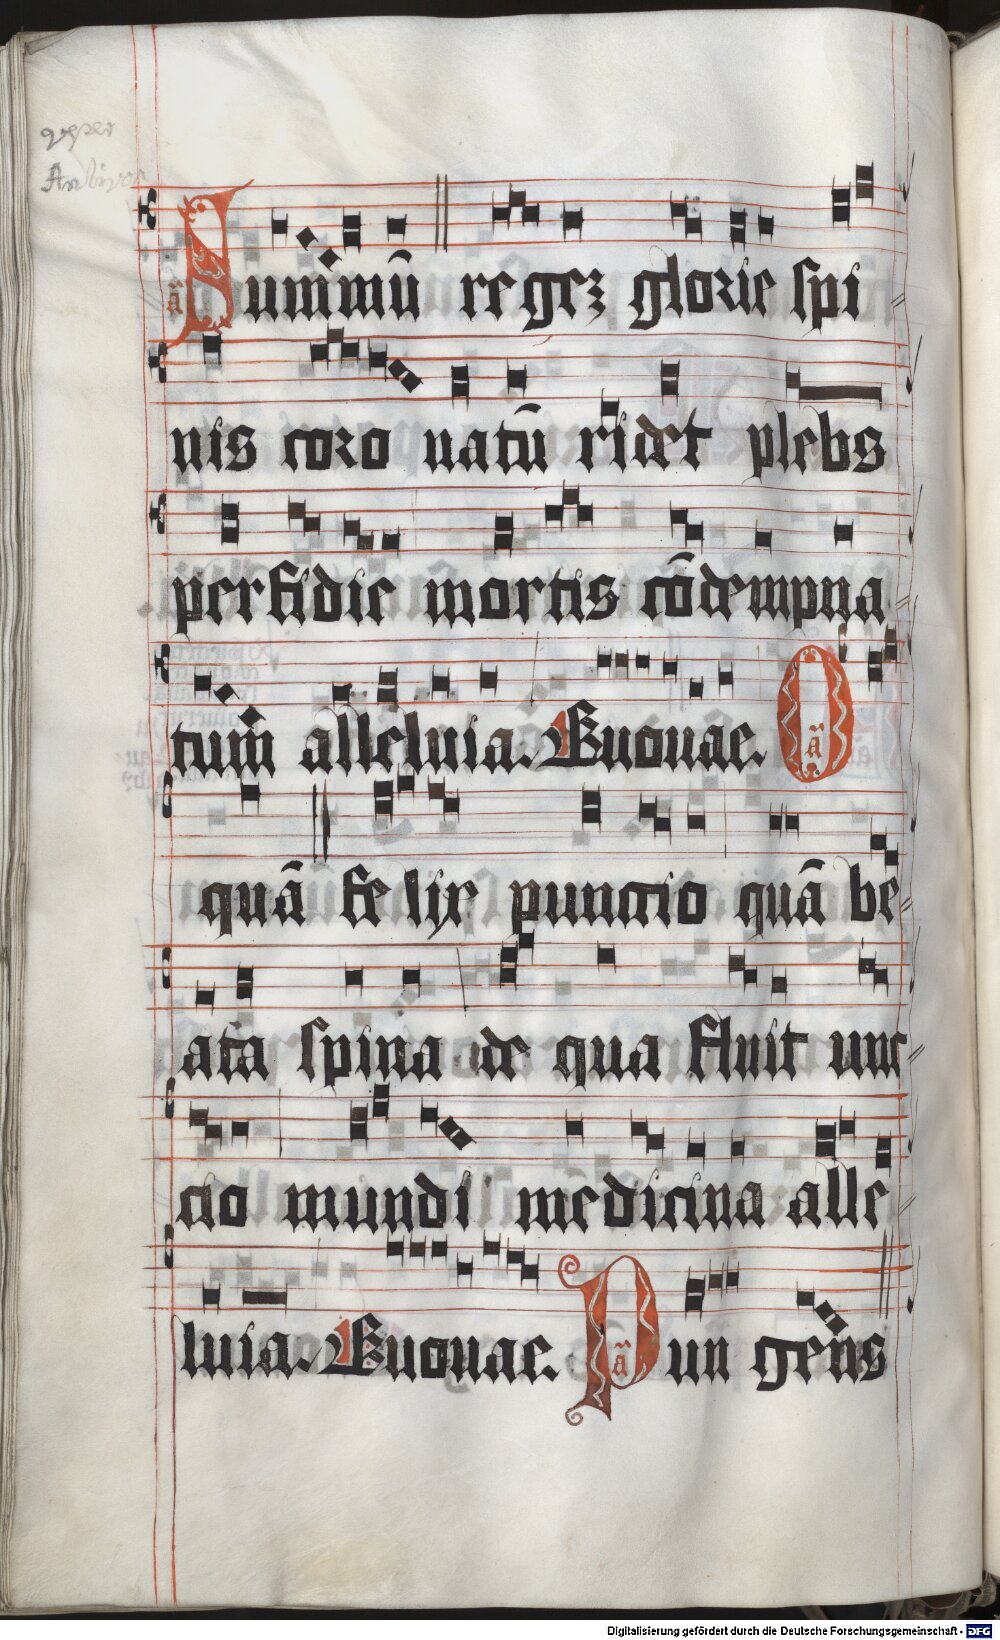 Summū regez glorie spi
nis coro natū ridet plebs
perfidie mortis cōdempna
tum alleluia. Euouae. O
quā felix punctio quā be
ata spina de qua fluit unc
cio mundi medicina alle
luia. Euouae. Pun gens
Digitalisierung gefördert durch die Deutsche Forschungsgemeinschaft - DFG